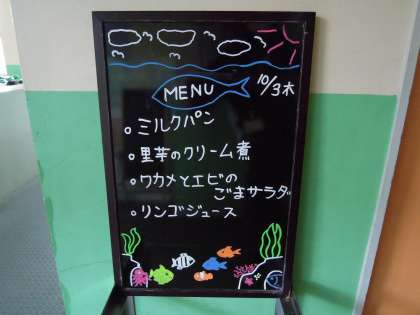 MENU
10/3木
○ミルクパン
○里芋のクリーム煮
○ワカメとエビの
ごまサラダ
○リンゴジュース